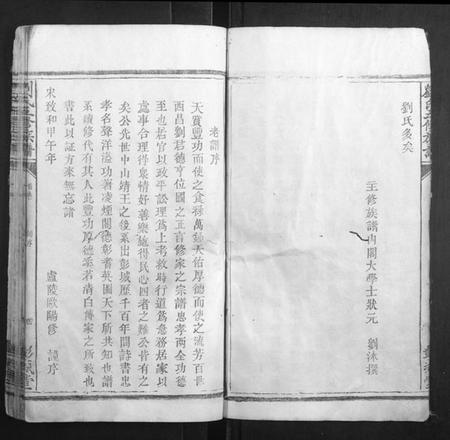 劉氏多矣
主修族譜內閣大學士狀元　劉沭撰
老譜序
天賓豐功而使之食祿萬鍾天佑厚德而使之流芳百世
西昌劉君德亨位國之正音修家之宗譜忠孝兩全功德
至也若官以政平訟理爲上考救時行道爲急務居家以
處事合理得衆情好善樂施得民心四者之難公皆有之
矣公先世中山靖王之後系出彭城歷千百年間詩書忠
孝名聲洋溢功著凌煙閣德彰耆英園天下所共知也譜
系續修代有其人此豐功厚德系若清白傳家之所致也
書此以証方來無忘諸
宋致和甲午年
廬陵歐陽修　謹序